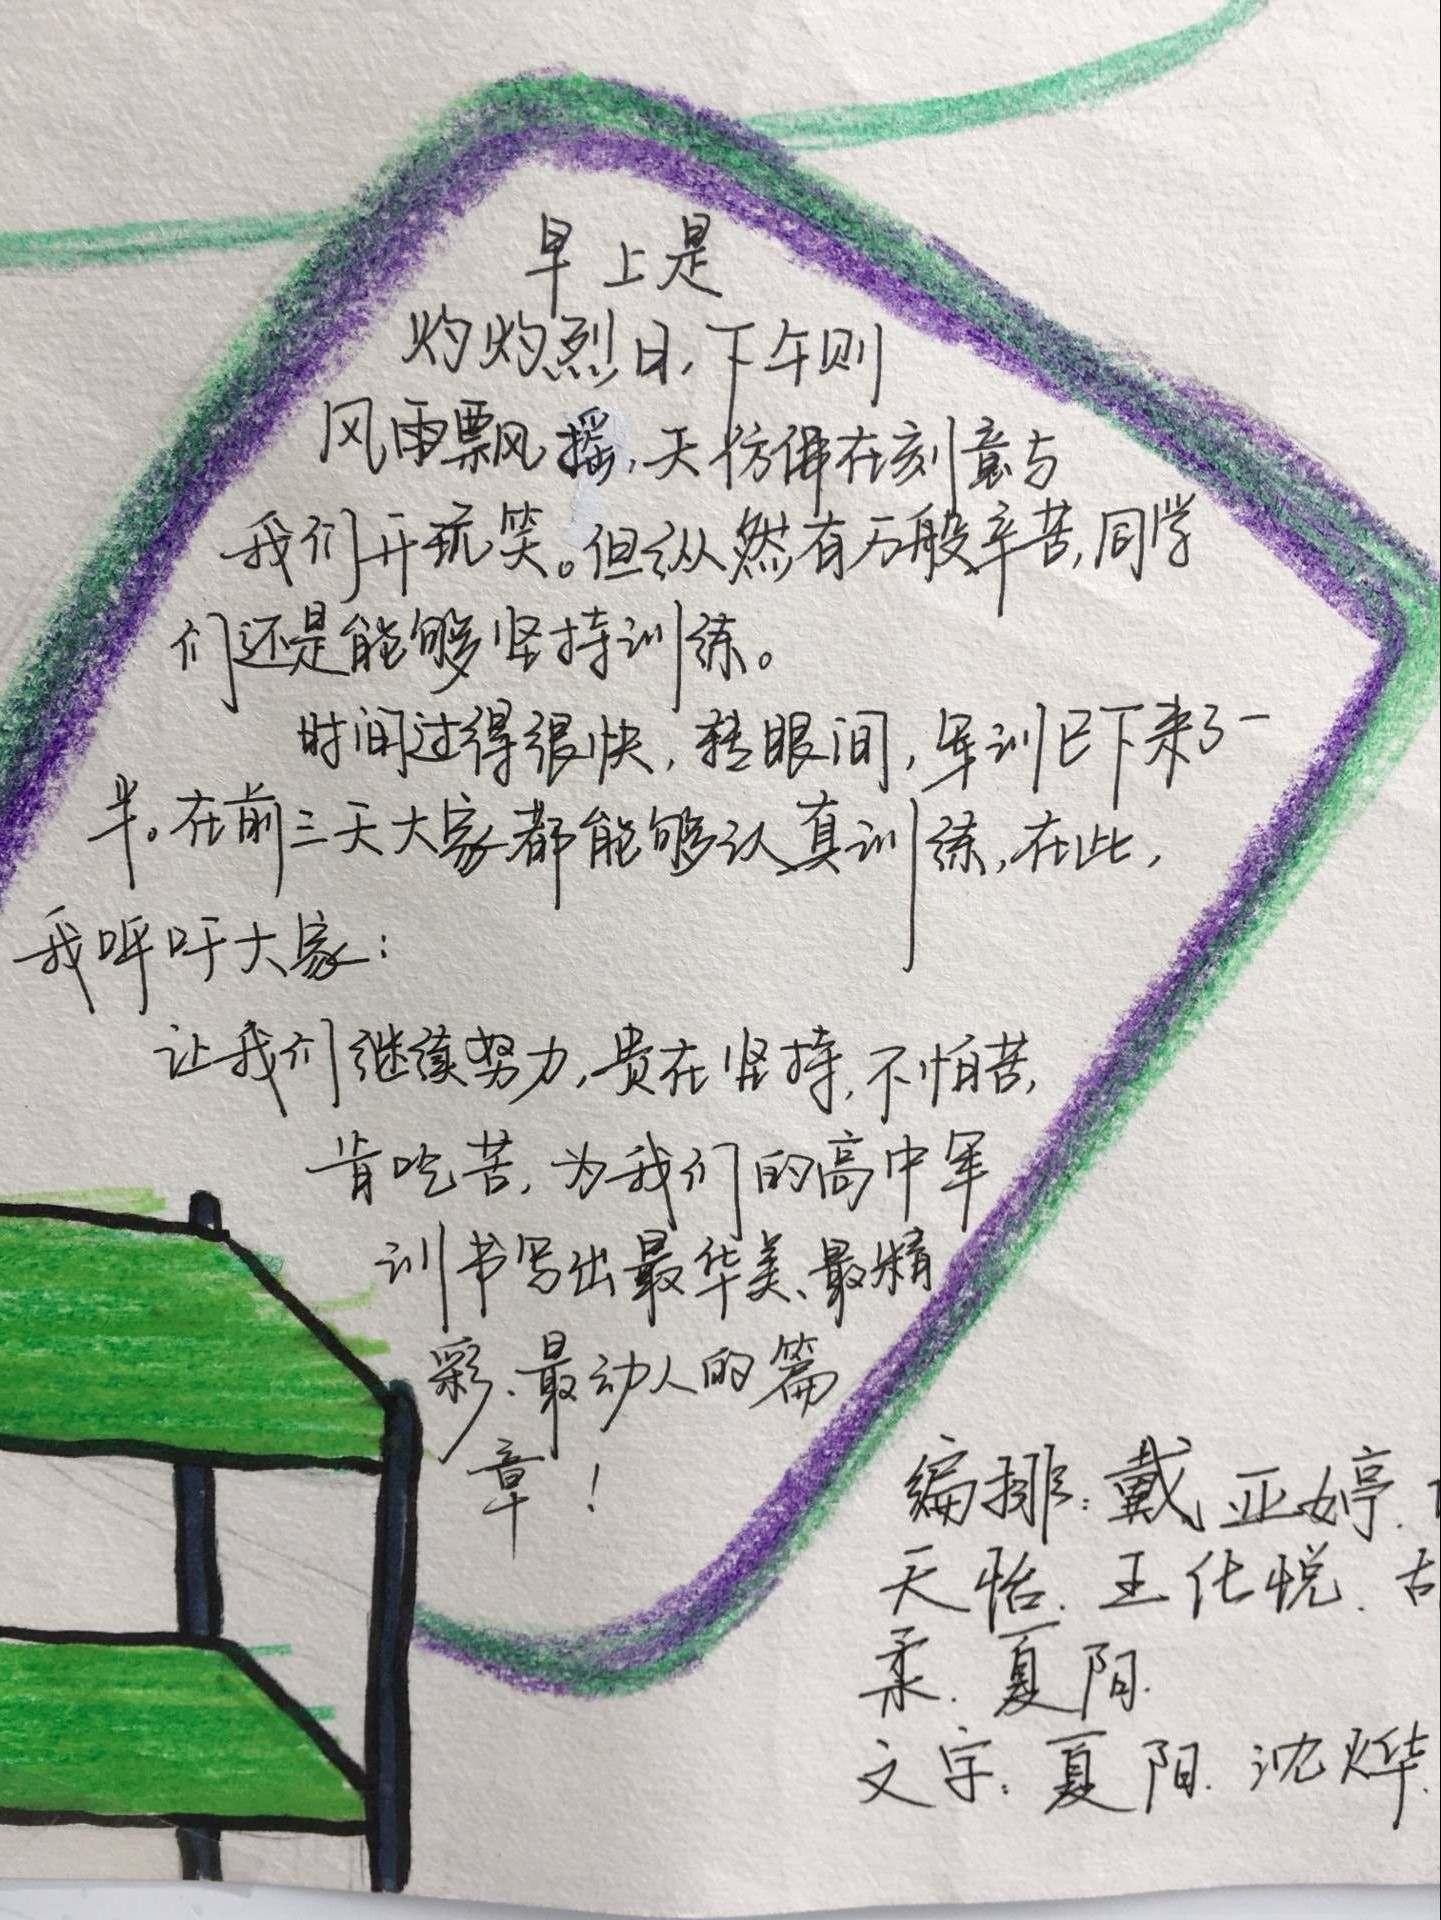 早上是
灼灼烈日，下午则
风雨飘摇，天仿佛在刻意与
我们开玩笑。但纵然有万般辛苦，同学
们还是能够坚持训练。
时间过得很快，转眼间，军训已下来了一
半。在前三天大家都能够认真训练，在此，
我呼吁大家：
让我们继续努力，贵在坚持，不怕苦，
肯吃苦，为我们的高中军
训书写出最华美、最精
彩、最动人的篇
章！
编排：戴亚婷.
天怡. 王仕悦.
柔. 夏阳.
文字：夏阳. 沈烨.